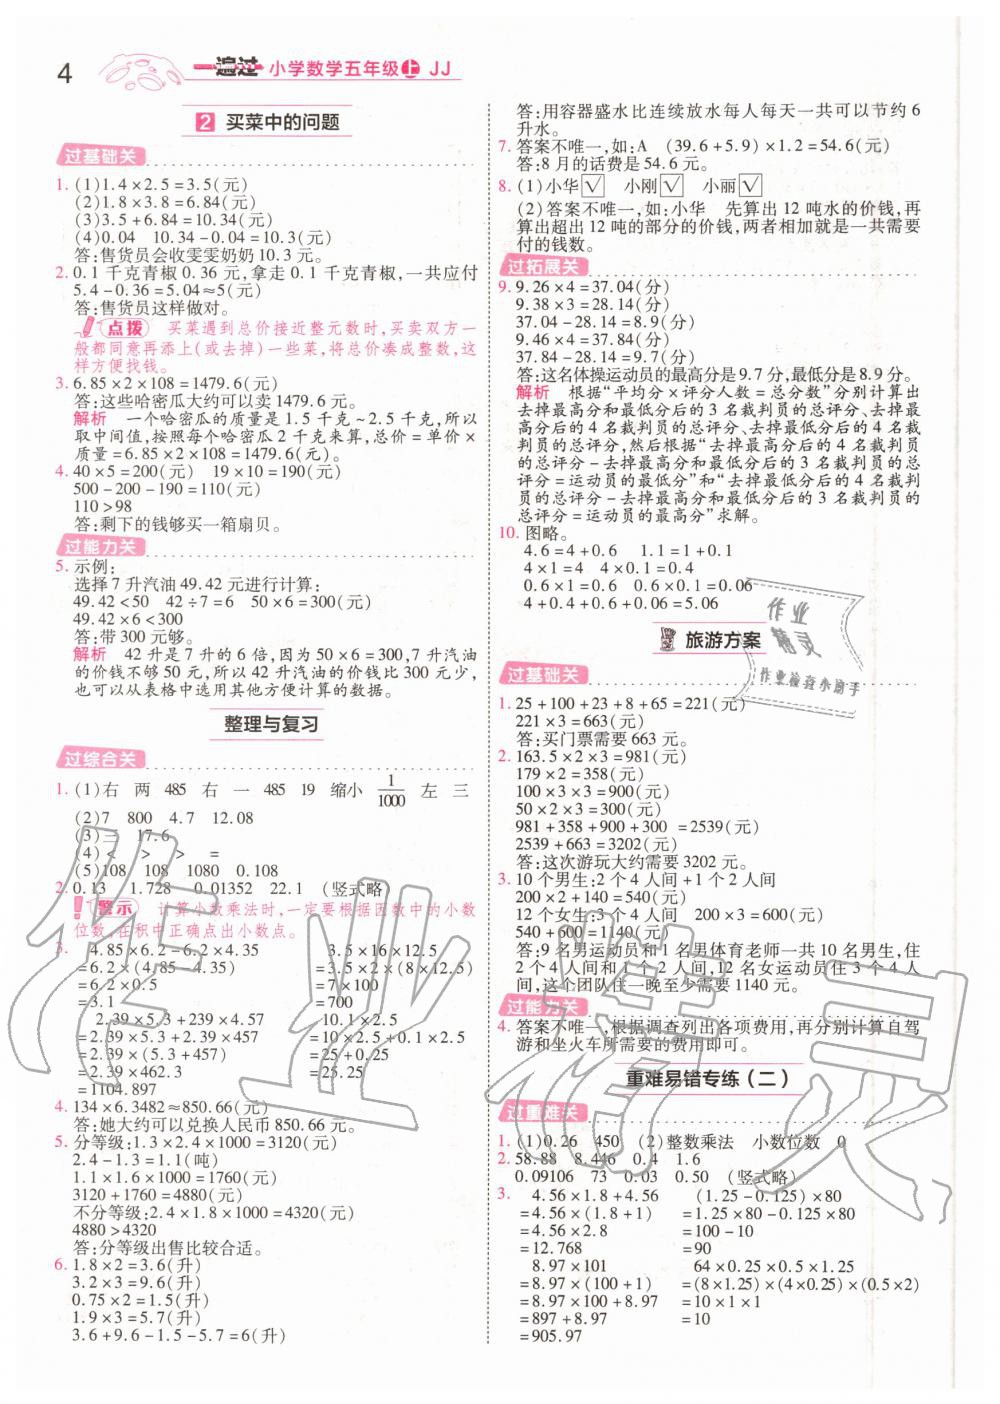 4
一遍过 小学数学五年级上 JJ
2 买菜中的问题
过基础关
1. (1)1.4×2.5=3.5(元)
(2)1.8×3.8=6.84(元)
(3)3.5+6.84=10.34(元)
(4)0.04 10.34-0.04=10.3(元)
答:售货员会收雯雯奶奶10.3元。
2. 0.1千克青椒0.36元,拿走0.1千克青椒,一共应付
5.4-0.36=5.04≈5(元)
答:售货员这样做对。
点拨 买菜遇到总价接近整元数时,买卖双方一
般都同意再添上(或去掉)一些菜,将总价凑成整数,这
样方便找钱。
3. 6.85×2×108=1479.6(元)
答:这些哈密瓜大约可以卖1479.6元。
解析 一个哈密瓜的质量是1.5千克~2.5千克,所以
取中间值,按照每个哈密瓜2千克来算,总价=单价×
质量=6.85×2×108=1479.6(元)。
4. 40×5=200(元) 19×10=190(元)
500-200-190=110(元)
110>98
答:剩下的钱够买一箱扇贝。
过能力关
5. 示例:
选择7升汽油49.42元进行计算:
49.42<50 42÷7=6 50×6=300(元)
49.42×6<300
答:带300元够。
解析 42升是7升的6倍,因为50×6=300,7升汽油
的价钱不够50元,所以42升汽油的价钱比300元少,
也可以从表格中选用其他方便计算的数据。
整理与复习
过综合关
1. (1)右 两 485 右 一 485 19 缩小 1/1000 左 三
(2)7 800 4.7 12.08
(3)三 17.6
(4)< > > =
(5)108 108 1080 0.108
2. 0.13 1.728 0.01352 22.1 (竖式略)
警示 计算小数乘法时,一定要根据因数中的小数
位数,在积中正确点出小数点。
3. 4.85×6.2-6.2×4.35 3.5×16×12.5
=6.2×(4.85-4.35) =3.5×2×(8×12.5)
=6.2×0.5 =7×100
=3.1 =700
2.39×5.3+239×4.57 10.1×2.5
=2.39×5.3+2.39×457 =10×2.5+0.1×2.5
=2.39×(5.3+457) =25+0.25
=2.39×462.3 =25.25
=1104.897
4. 134×6.3482≈850.66(元)
答:她大约可以兑换人民币850.66元。
5. 分等级:1.3×2.4×1000=3120(元)
2.4-1.3=1.1(吨)
1.1×1.6×1000=1760(元)
3120+1760=4880(元)
不分等级:2.4×1.8×1000=4320(元)
4880>4320
答:分等级出售比较合适。
6. 1.8×2=3.6(升)
3.2×3=9.6(升)
0.75×2=1.5(升)
1.9×3=5.7(升)
3.6+9.6-1.5-5.7=6(升)
答:用容器盛水比连续放水每人每天一共可以节约6
升水。
7. 答案不唯一,如:A (39.6+5.9)×1.2=54.6(元)
答:8月的话费是54.6元。
8. (1)小华√ 小刚√ 小丽√
(2)答案不唯一,如:小华 先算出12吨水的价钱,再
算出超出12吨的部分的价钱,两者相加就是一共需要
付的钱数。
过拓展关
9. 9.26×4=37.04(分)
9.38×3=28.14(分)
37.04-28.14=8.9(分)
9.46×4=37.84(分)
37.84-28.14=9.7(分)
答:这名体操运动员的最高分是9.7分,最低分是8.9分。
解析 根据“平均分×评分人数=总分数”分别计算出
去掉最高分和最低分后的3名裁判员的总评分、去掉最
高分后的4名裁判员的总评分、去掉最低分后的4名裁
判员的总评分,然后根据“去掉最高分后的4名裁判员
的总评分-去掉最高分和最低分后的3名裁判员的总
评分=运动员的最低分”和“去掉最低分后的4名裁判
员的总评分-去掉最高分和最低分后的3名裁判员的
总评分=运动员的最高分”求解。
10. 图略。
4.6=4+0.6 1.1=1+0.1
4×1=4 4×0.1=0.4
0.6×1=0.6 0.6×0.1=0.06
4+0.4+0.6+0.06=5.06
旅游方案
过基础关
1. 25+100+23+8+65=221(元)
221×3=663(元)
答:买门票需要663元。
2. 163.5×2×3=981(元)
179×2=358(元)
100×3×3=900(元)
50×2×3=300(元)
981+358+900+300=2539(元)
2539+663=3202(元)
答:这次游玩大约需要3202元。
3. 10个男生:2个4人间+1个2人间
200×2+140=540(元)
12个女生:3个4人间 200×3=600(元)
540+600=1140(元)
答:9名男运动员和1名男体育老师一共10名男生,住
2个4人间和1个2人间,12名女运动员住3个4人
间,这个团队住一晚至少需要1140元。
过能力关
4. 答案不唯一,根据调查列出各项费用,再分别计算自驾
游和坐火车所需要的费用即可。
重难易错专练(二)
过重难关
1. (1)0.26 450 (2)整数乘法 小数位数 0
2. 58.88 8.446 0.4 1.6
0.09106 73 0.03 0.50 (竖式略)
3. 4.56×1.8+4.56 (1.25-0.125)×80
=4.56×(1.8+1) =1.25×80-0.125×80
=4.56×2.8 =100-10
=12.768 =90
8.97×101 64×0.25×0.5×1.25
=8.97×(100+1) =(8×1.25)×(4×0.25)×(0.5×2)
=8.97×100+8.97 =10×1×1
=897+8.97 =10
=905.97
作业
精灵
作业检查小助手
作业精灵